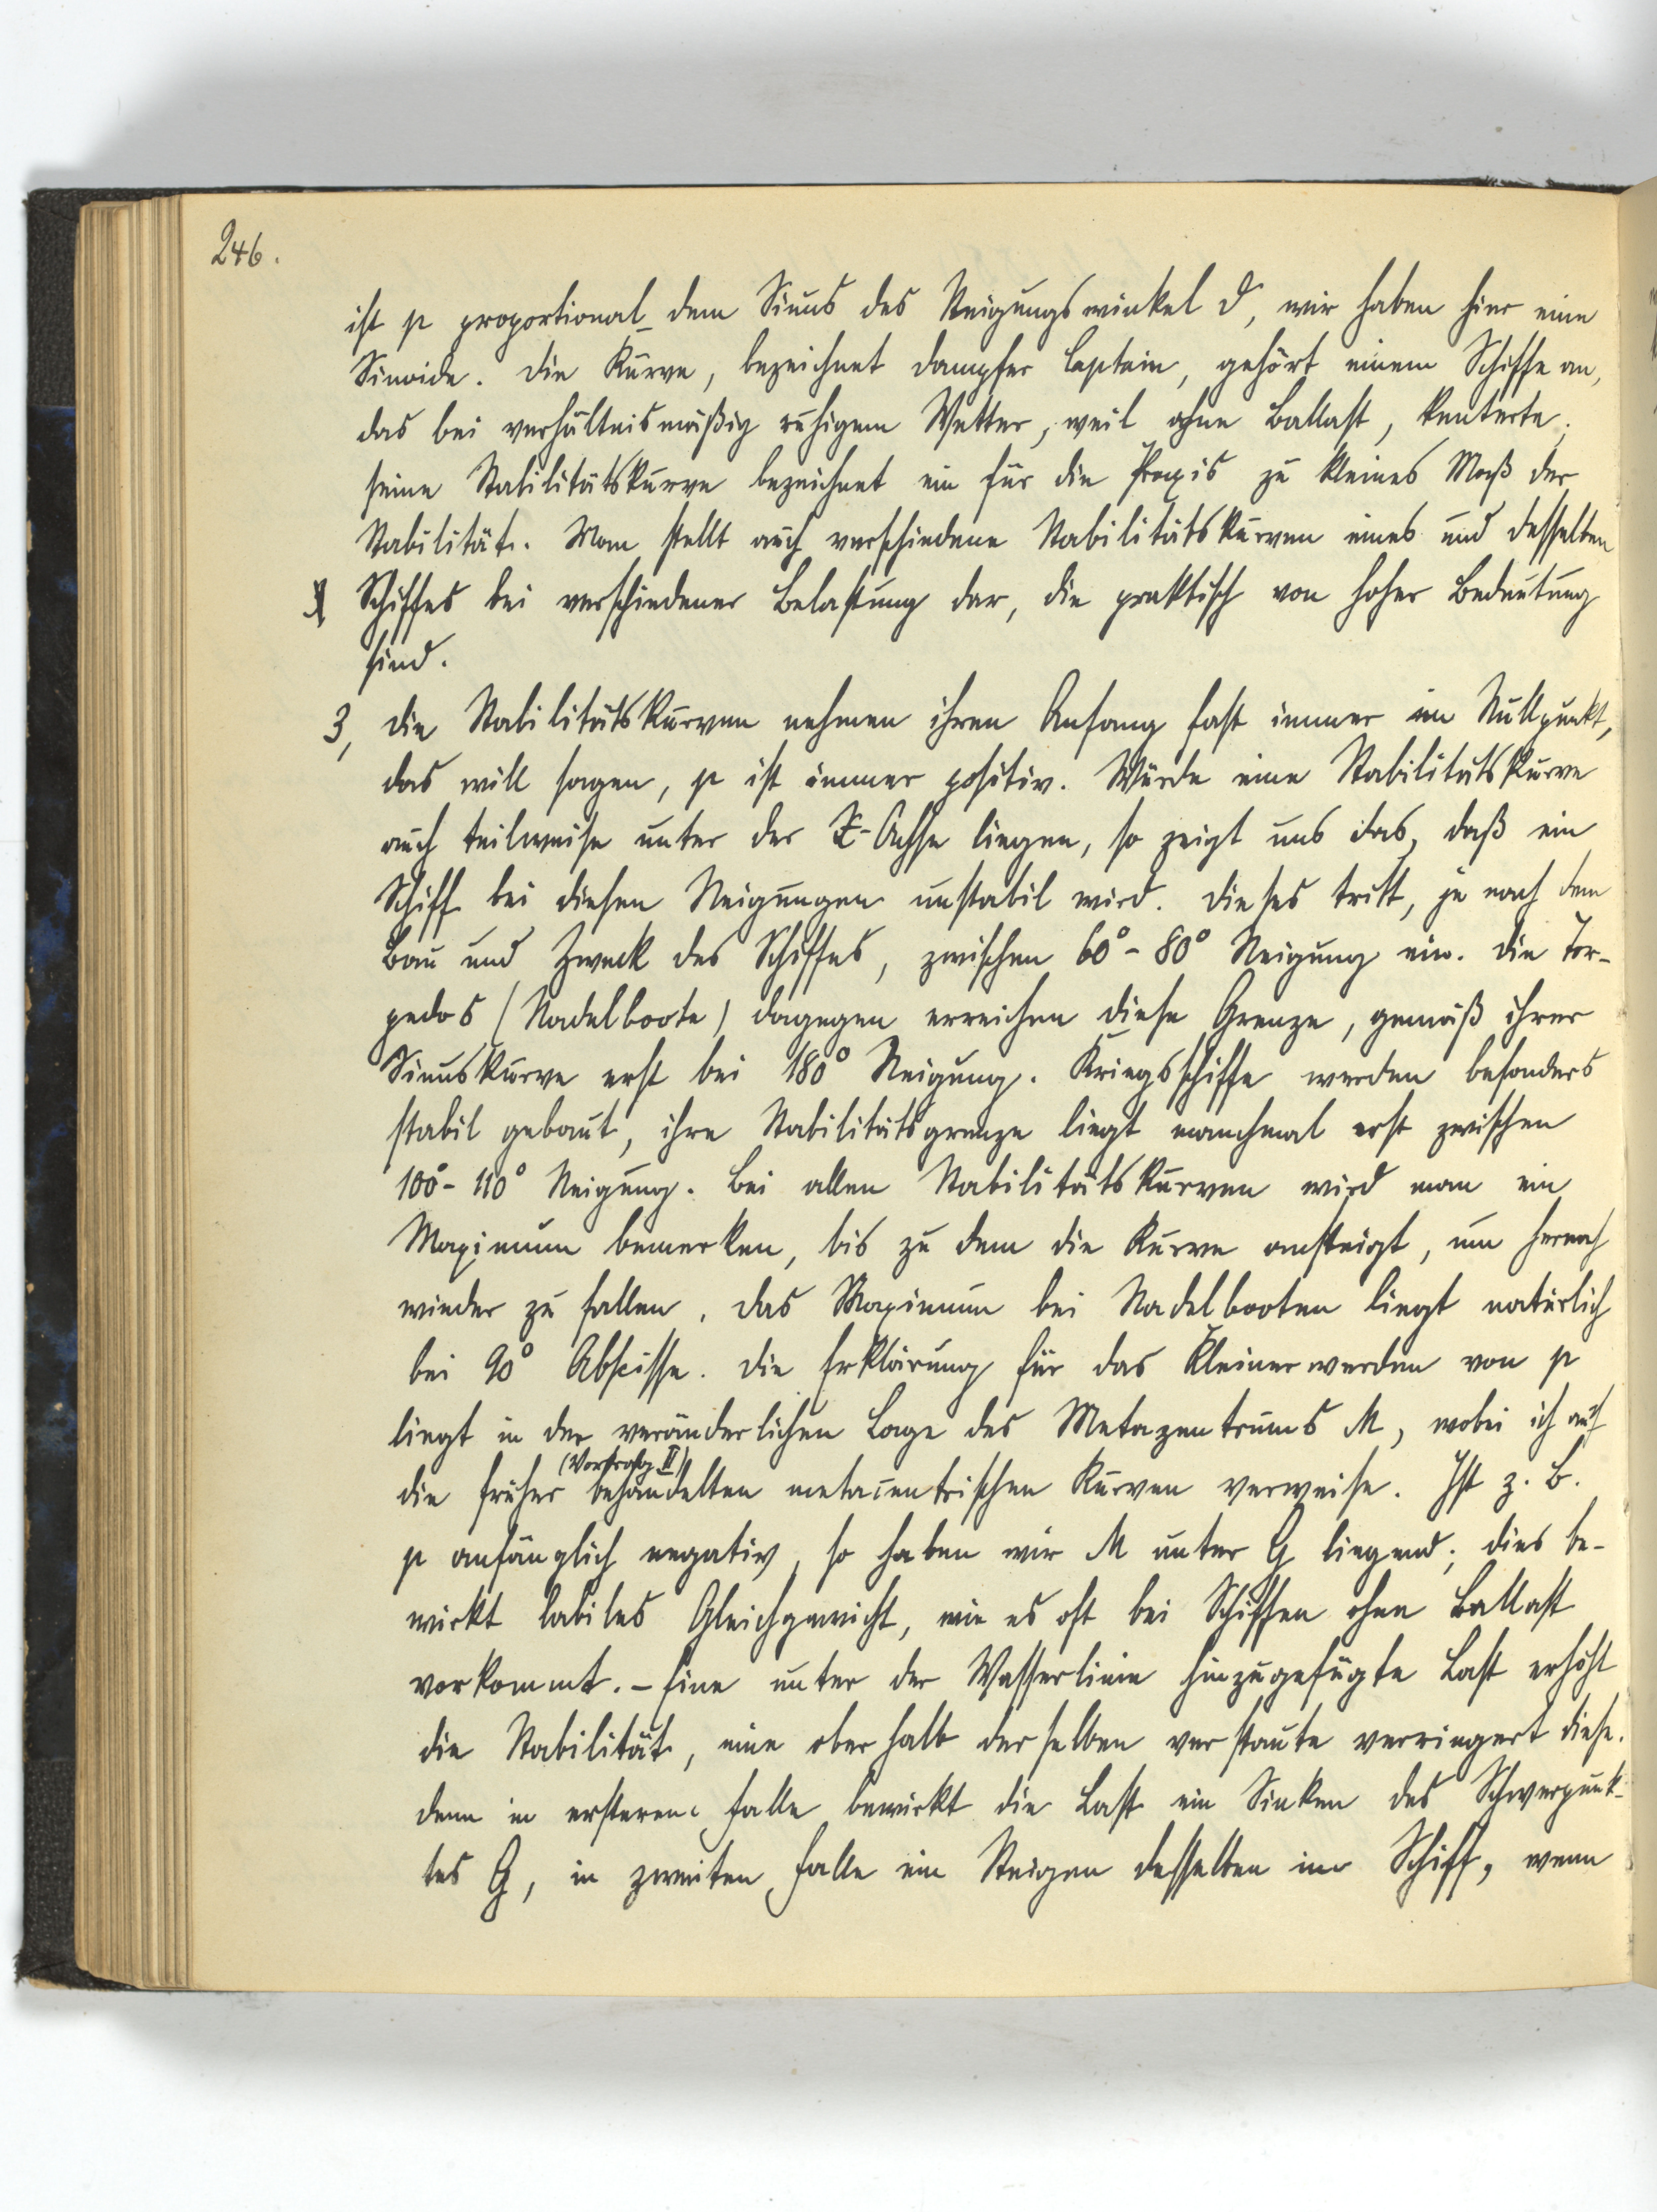 246.
ist p proportional dem Sinus des Neigungswinkel ϑ, wir haben hier eine
Sinoide. Die Kurve, bezeichnet Dampfer Captain, gehört einem Schiffe an,
das bei verhältnismäßig ruhigem Wetter, weil ohne Ballast, kenterte;
seine Stabilitätskurve bezeichnet ein für die Praxis zu kleines Maß der
Stabilität. Man stellt auch verschiedene Stabilitätskurven eines und desselben
Schiffes bei verschiedener Belastung dar, die praktisch von hoher Bedeutung
sind.
3, Die Stabilitätskurven nehmen ihren Anfang fast immer im Nullpunkt,
das will sagen, p ist immer positiv. Würde eine Stabilitätskurve
auch teilweise unter der X-Achse liegen, so zeigt uns das, daß ein
Schiff bei diesen Neigungen unstabil wird. Dieses tritt, je nach dem
Bau und Zweck des Schiffes, zwischen 60° - 80° Neigung ein. Die Tor-
pedos (Nadelboote) dagegen erreichen diese Grenze, gemäß ihrer
Sinuskurve erst bei 180° Neigung. Kriegsschiffe werden besonders
stabil gebaut, ihre Stabilitätsgrenze liegt manchmal erst zwischen
100° - 110° Neigung. Bei allen Stabilitätskurven wird man ein
Maximum bemerken, bis zu dem die Kurve ansteigt, um hernach
wieder zu fallen. Das Maximum bei Nadelbooten liegt natürlich
bei 90° Abscisse. Die Erklärung für das Kleinerwerden von p
liegt in der veränderlichen Lage des Metazentrums M, wobei ich auf
(Vortrag II)
die früher behandelten metacentrischen Kurven verweise. Ist z. B.
p anfänglich negativ, so haben wir M unter G liegend; dies be-
wirkt labiles Gleichgewicht, wie es oft bei Schiffen ohne Ballast
vorkommt. - Eine unter der Wasserlinie hinzugefügte Last erhöht
die Stabilität, eine oberhalb derselben verstaute verringert diese.
denn in ersteren Falle bewirkt die Last ein Sinken des Schwerpunk-
tes G, in zweiten Falle ein Steigen desselben im Schiff, wenn